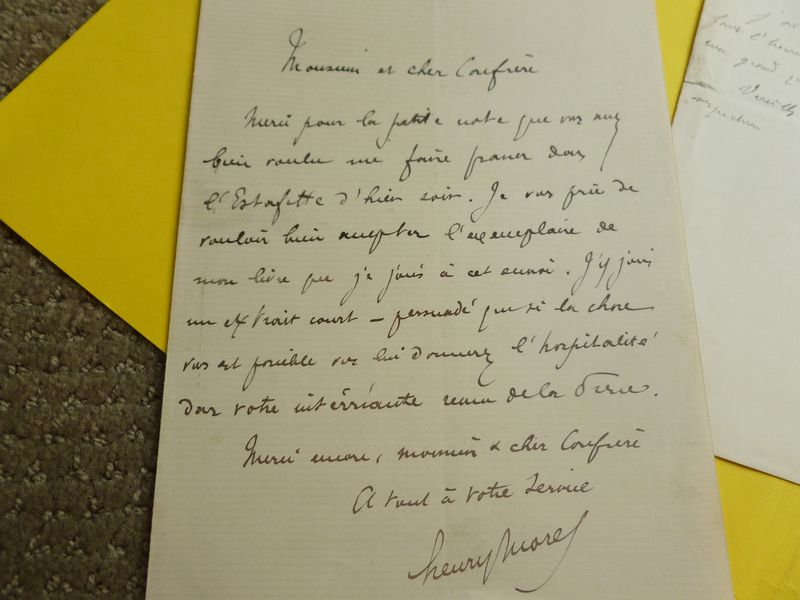 Monsieur et cher Confrère
Merci pour la petite note que vous avez
bien voulu me faire passer dans
l'Estafette d'hier soir. Je vous prie de
vouloir bien accepter l'exemplaire de
mon livre que je joins à cet envoi. J'y joins
un extrait court – persuadé que si la chose
vous est possible vous lui donnerez l'hospitalité
dans votre intéressante revue de la
Merci encore, monsieur & cher Confrère
A vous à votre service
Henry Morel
J'ai
grand